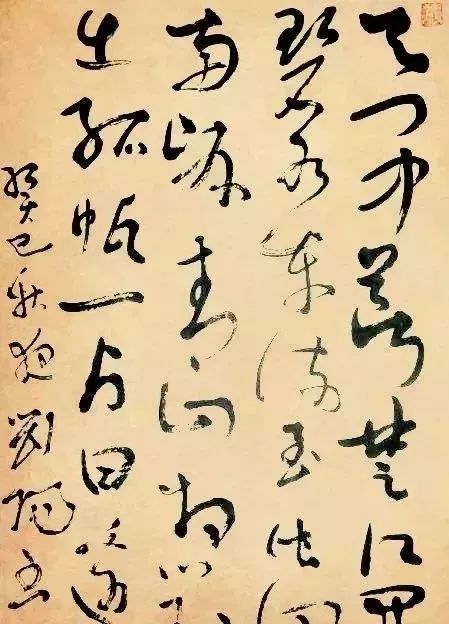 天门中断楚江开
碧水东流至此回
两岸青山相對
出孤帆一片日边
癸巳秋夜劉陽書